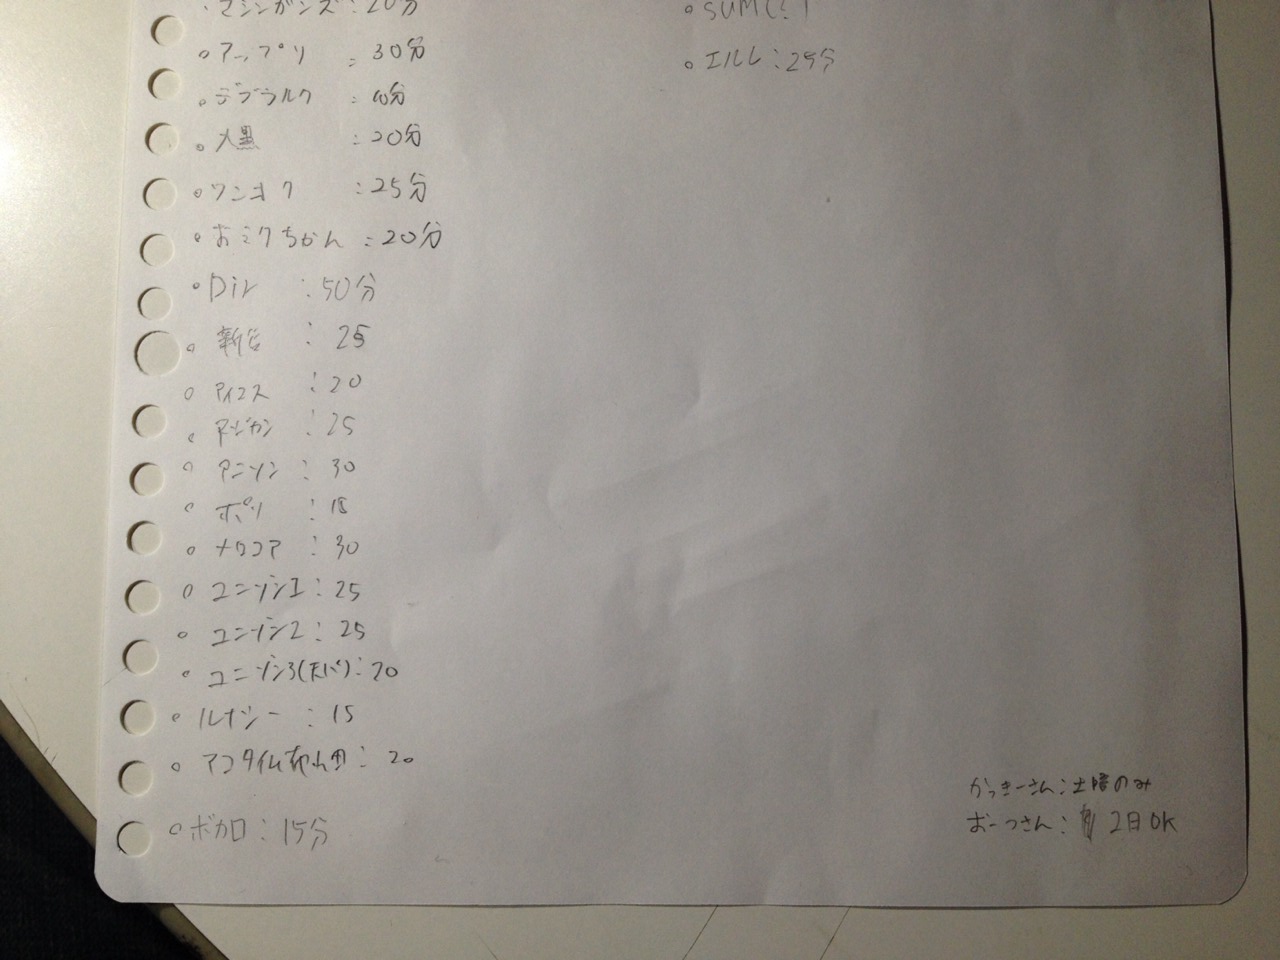 マシンガンズ:20分
アップリ:30分
デブラルク:10分
人黒:20分
ワンオク:25分
おミクちかん:20分
Dir:50分
新谷:25
アイコス:20
アジカン:25
アニソン:30
ポリ:15
メロコア:30
ユニゾン1:25
ユニゾン2:25
ユニゾン3(天バ):20
ルナシー:15
アコタイム:20
ボカロ:15分
SUM
エルレ:25分
かっきーさん:土曜のみ
おーつさん:2日OK